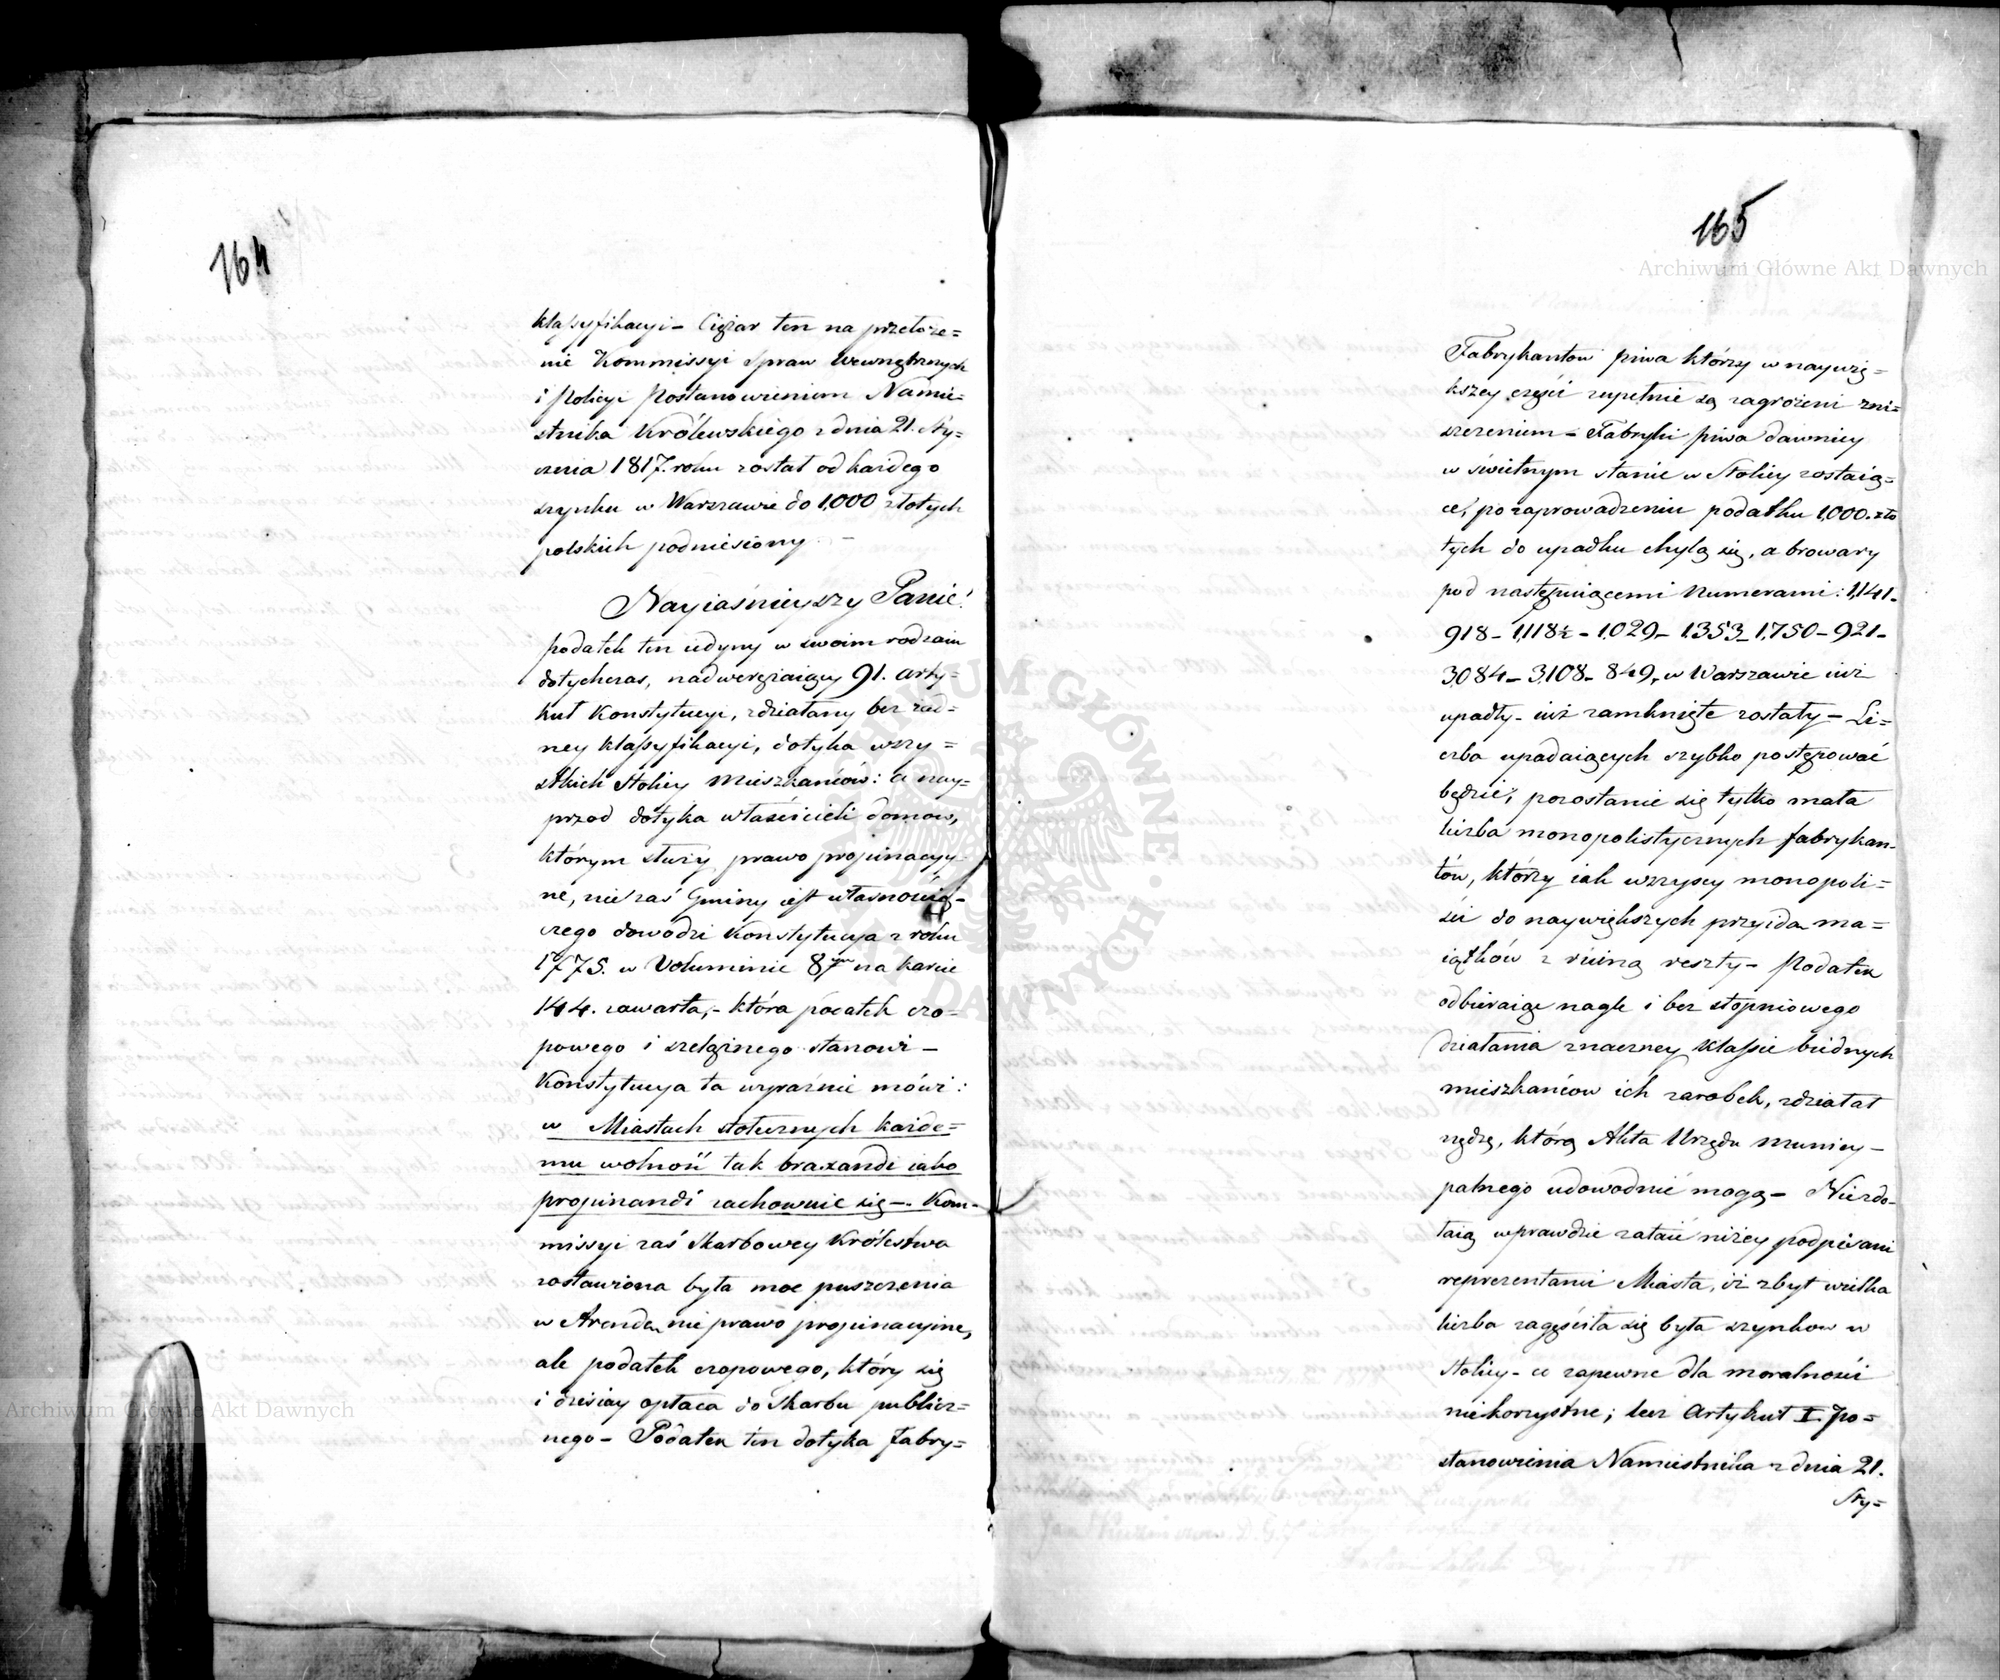 164
klassyfikacyi – Ciężar ten na przełoże=
nie Kommissyi Spraw Wewnętrznych
i Policyi Postanowieniem Namie=
stnika Królewskiego z dnia 21. Sty=
cznia 1817. roku został od każdego
szynku w Warszawie do 1,000 złotych
polskich podniesiony –
Nayiaśnieyszy Panie!
podatek ten iedyny w swoim rodzaiu
dotychczas, nadwerężaiący 91. arty=
kuł Konstytucyi, zdziałany bez żad=
ney klassyfikacyi, dotyka wszy=
stkich Stolicy Mieszkańców: a nay=
przod dotyka właścicieli domow,
którym służy prawo propinacyy
ne, nie zaś Gminy iest własnością –
czego dowodzi Konstytucya z roku
1775. w Voluminie 8ym na karcie
144. zawarta, – która podatek czo=
powego i szelężnego stanowi –
Konstytucya ta wyraźnie mówi:
w Miastach stołecznych każde=
mu wolność tak braxandi iako
propinandi zachownie się –. Kom=
missyi zaś Skarbowey Królestwa
zostawiona była moc puszczenia
w Arendę nie prawo propinacyine,
ale podatek czopowego, który się
i dzisiay opłaca do Skarbu publicz=
nego – Podatek ten dotyka Fabry=
165
Fabrykantow piwa którzy w naywię=
kszey części zupełnie są zagrożeni zni=
szczeniem – Fabryki piwa dawniey
w świetnym stanie w Stolicy zostaią=
ce, po zaprowadzeniu podatku 1,000. zło
tych do upadku chylą się, a browary
pod następuiącemi Numerami: 1,141.
918 – 1,118½ – 1,029 – 1,353 – 1,750 – 921 –
3,084 – 3,108 – 849, w Warszawie iuż
upadły – iuż zamknięte zostały – Li=
czba upadaiących szybko postępować
będzie, pozostanie się tylko mała
liczba monopolistycznych fabrykan=
tów, którzy iak wszyscy monopoli=
ści do naywiększych przyida ma=
iątków z ruiną reszty – Podatek
odbieraiąc nagle i bez stopniowego
działania znaczney klassie biednych
mieszkańcow ich zarobek, zdziałał
nędzę, którą Akta Urzędu Municy –
palnego udowodnić mogą – Niezdo=
łaią wprawdzie zataić niżey podpisani
reprezentanci Miasta, iż zbyt wielka
liczba zagęściła się była szynkow w
Stolicy – co zapewne dla moralności
niekorzystne; lecz Artykuł I. Po=
stanowienia Namiestnika z dnia 21.
Sty=
Archiwum Główne Akt Dawnych
Archiwum Główne Akt Dawnych
ARCHIWUM GŁÓWNE AKT DAWNYCH